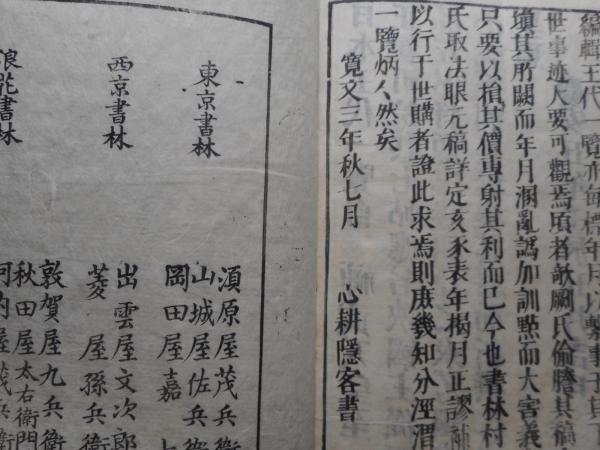 編輯王代一覽亦每標年月以繫事于其下
世事迹大要可觀焉頃者敵劂氏偷謄其稿
填其所闕而年月溷亂譌加訓點而大害義
只要以搶其價專射其利而已今也書林村
氏取法眼元稿詳定亥豕表年揭月正謬補
以行于世購者證此求焉則庶幾知分涇渭
一覽炳〻然矣
寛文三年秋七月 心耕隱客書
東京書林
須原屋茂兵衛
山城屋佐兵衛
岡田屋嘉
西京書林
出雲屋文次郎
菱屋孫兵衛
浪花書林
敦賀屋九兵衛
秋田屋太右衛門
河内屋茂兵衛